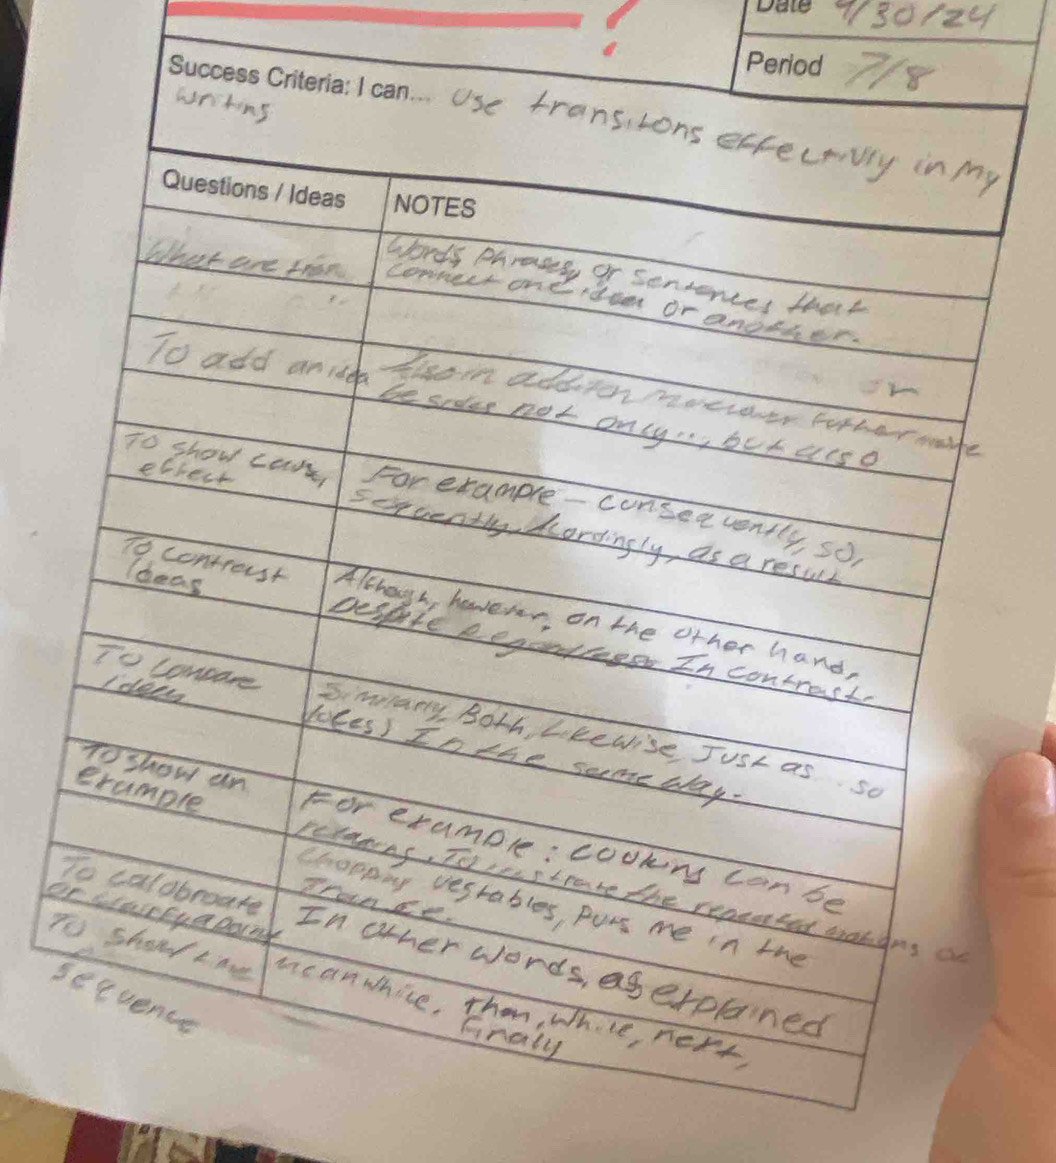 Date 9/30/24
Period 7/8
Success Criteria: I can... Use transitons effectivly in my
writing
Questions / Ideas NOTES
What are tran
Words, phrases, or sentences that
connect one idea or another.
To add an idea
Also in additon moreover futhermore or
besides not only..., but also
To show cause,
effect
For example - consequently, so,
sequently, Acordingly, as a result
To contreast
ideas
Although, however, on the other hand,
Despite In contrast.
To compare
ideas
Similarly, Both, Likewise, Just as... so
In the same way.
To show an
example
For example: cooking can be
relaxing. To the repeated motions of
chopping vegtables, puts me in the
trance.
To calobroate
or clairfy a point
In other words, as explained
To show time
sequence
meanwhile, then, while, next,
Finaly